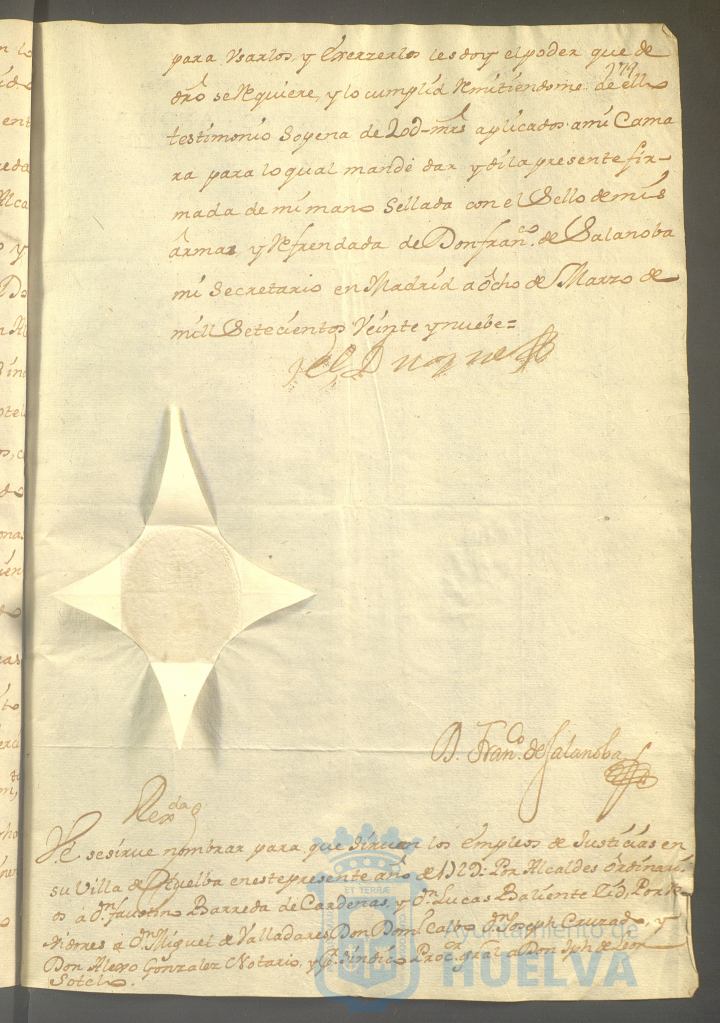 para Usarlos, y Exerzerlos les doy el poder que de
279
dro se Requiere, y lo cumplid Remitiendome de ello
testimonio so pena de 20d-mrs aplicados ami Cama
ra para lo qual mande dar y di la presente fir-
mada de mi mano Sellada con el Sello de mis
Armas y Refrendada de Don franco. de Salanoba
mi Secretario en Madrid a ôcho de Marzo de
mill Setecientos Veinte y nuebe=
El Duque
D. Franco. de Salanoba
VE se sirue nombrar para que siruan los empleos de Justicias en
su Villa de Huelba en este presente año de 1729: Por Alcaldes ôrdinari
os â Dn. faustino Barreda de Cardenas, y Dn. Lucas Baliente Zid, Por Re
xidores â Dn. Miguel de Valladares Don Doml. Calbo Dn. Joseph Cruzado, y
Don Alexo Gonzalez Notario, y Pr. Sindico Procor. gral a Don Jph de Leon
Sotelo.
Ayuntamiento de
HUELVA